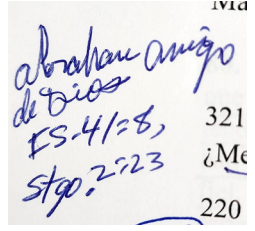 Ma
abrahan amigo
de Dios
ES-41:8,
Stgo. 2:23
321
¿Me
220